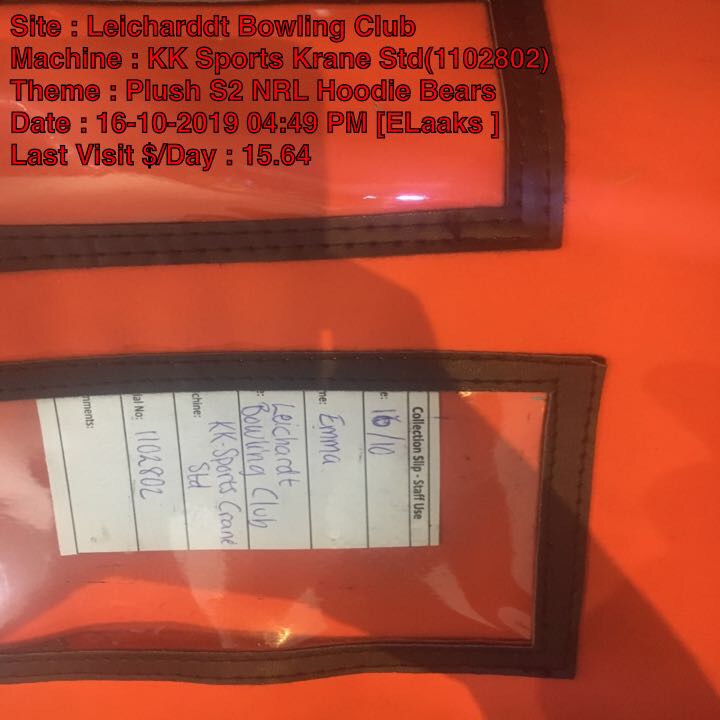 Site : Leicharddt Bowling Club
Machine : KK Sports Krane Std(1102802)
Theme : Plush S2 NRL Hoodie Bears
Date : 16-10-2019 04:49 PM [ELaaks ]
Last Visit $/Day : 15.64
Collection Slip - Staff Use
e: 16/10
me: Emma
e: Leichardt
Bowling Club
chine: KK-Sports Crane
Std
ial No: 1102802
mments: